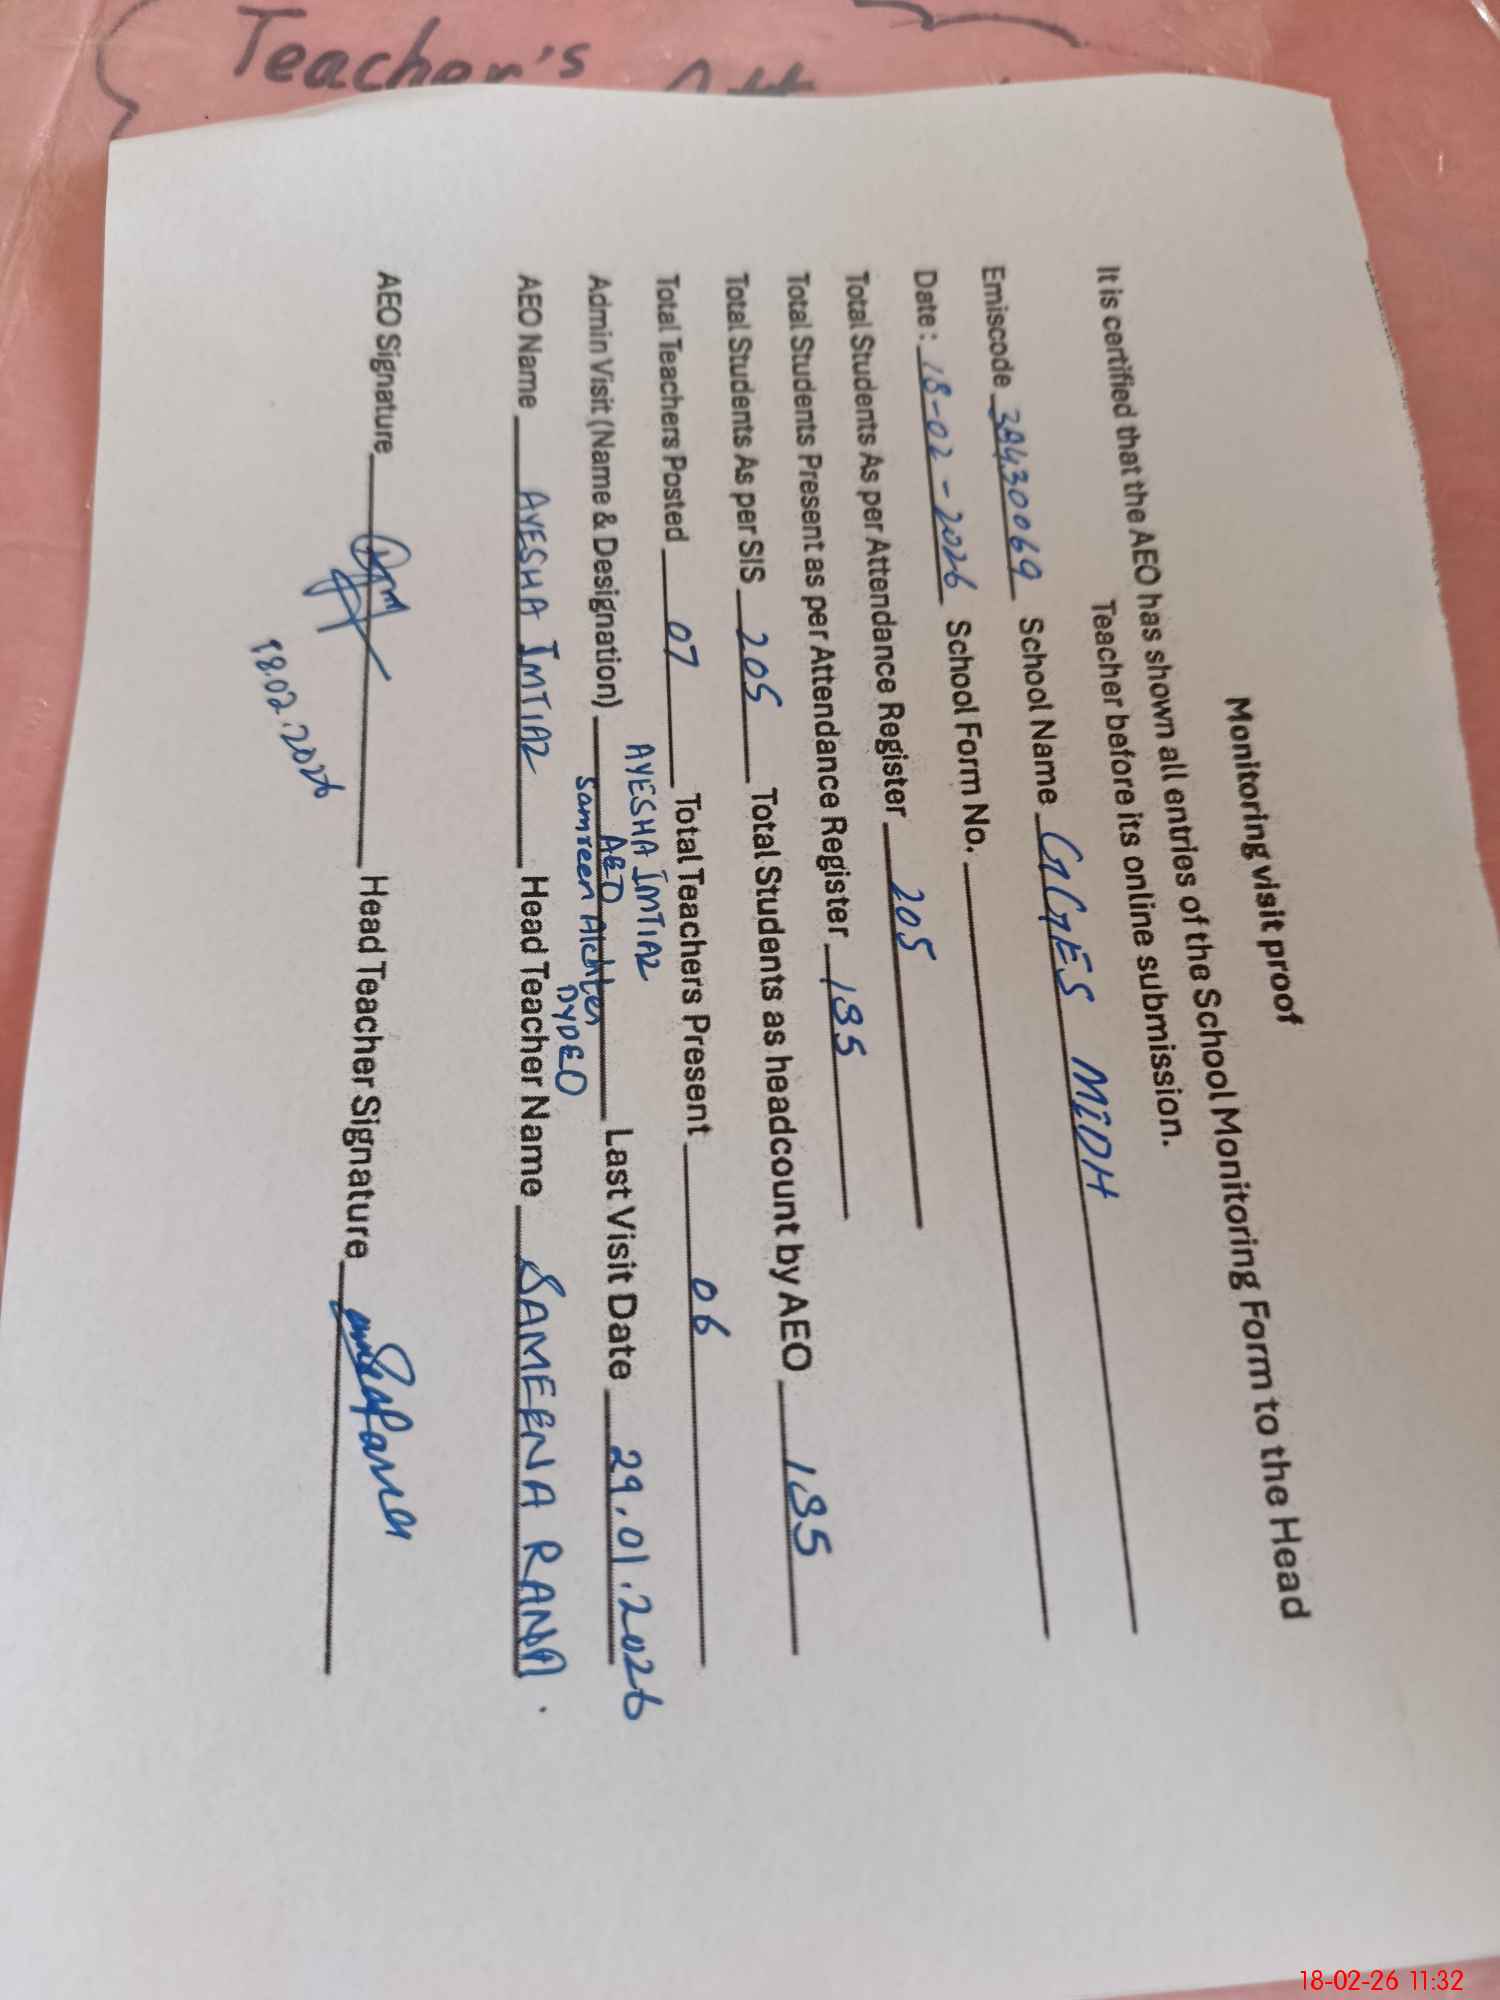 Teacher's
Monitoring visit proof
It is certified that the AEO has shown all entries of the School Monitoring Form to the Head
Teacher before its online submission.
Emiscode 38430069 School Name GGES MIDH
Date: 18-02-2026 School Form No.
Total Students As per Attendance Register 205
Total Students Present as per Attendance Register 185
Total Students As per SIS 205 Total Students as headcount by AEO 185
Total Teachers Posted 07 Total Teachers Present 06
AYESHA IMTIAZ
Admin Visit (Name & Designation) AEO Last Visit Date 29.01.2026
Samreen Akhter
DYDEO
AEO Name AYESHA IMTIAZ Head Teacher Name SAMEENA RANA.
AEO Signature Head Teacher Signature
18.02.2026
18-02-26 11:32